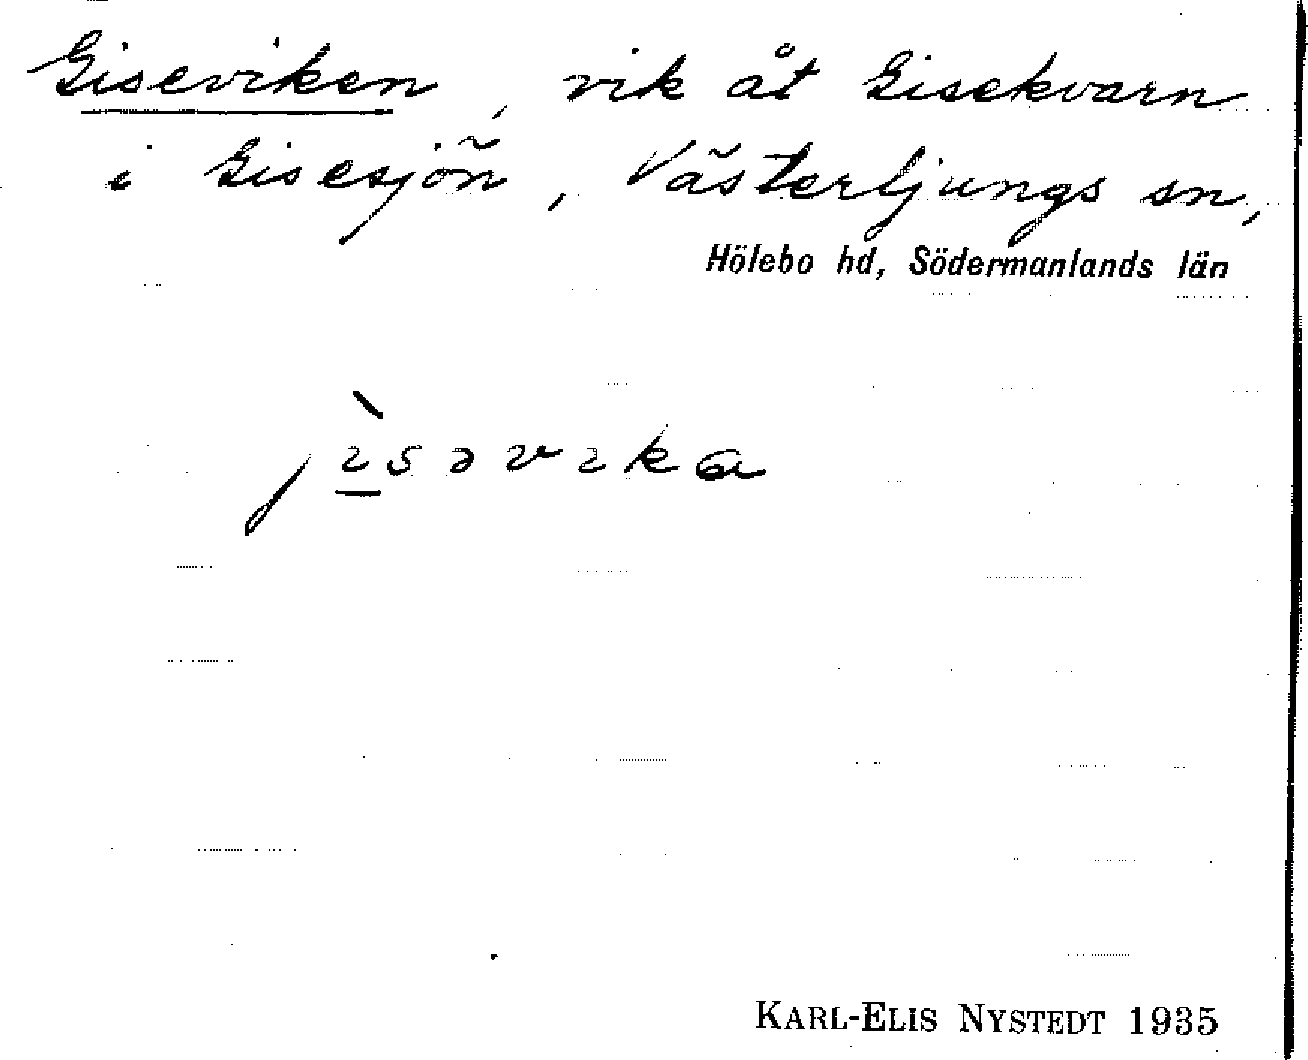 Giseviken, vik åt Gisekvarn
i Gisesjön, Västerljungs sn,
Hölebo hd, Södermanlands län
jì̱səvika
KARL-ELIS NYSTEDT 1935